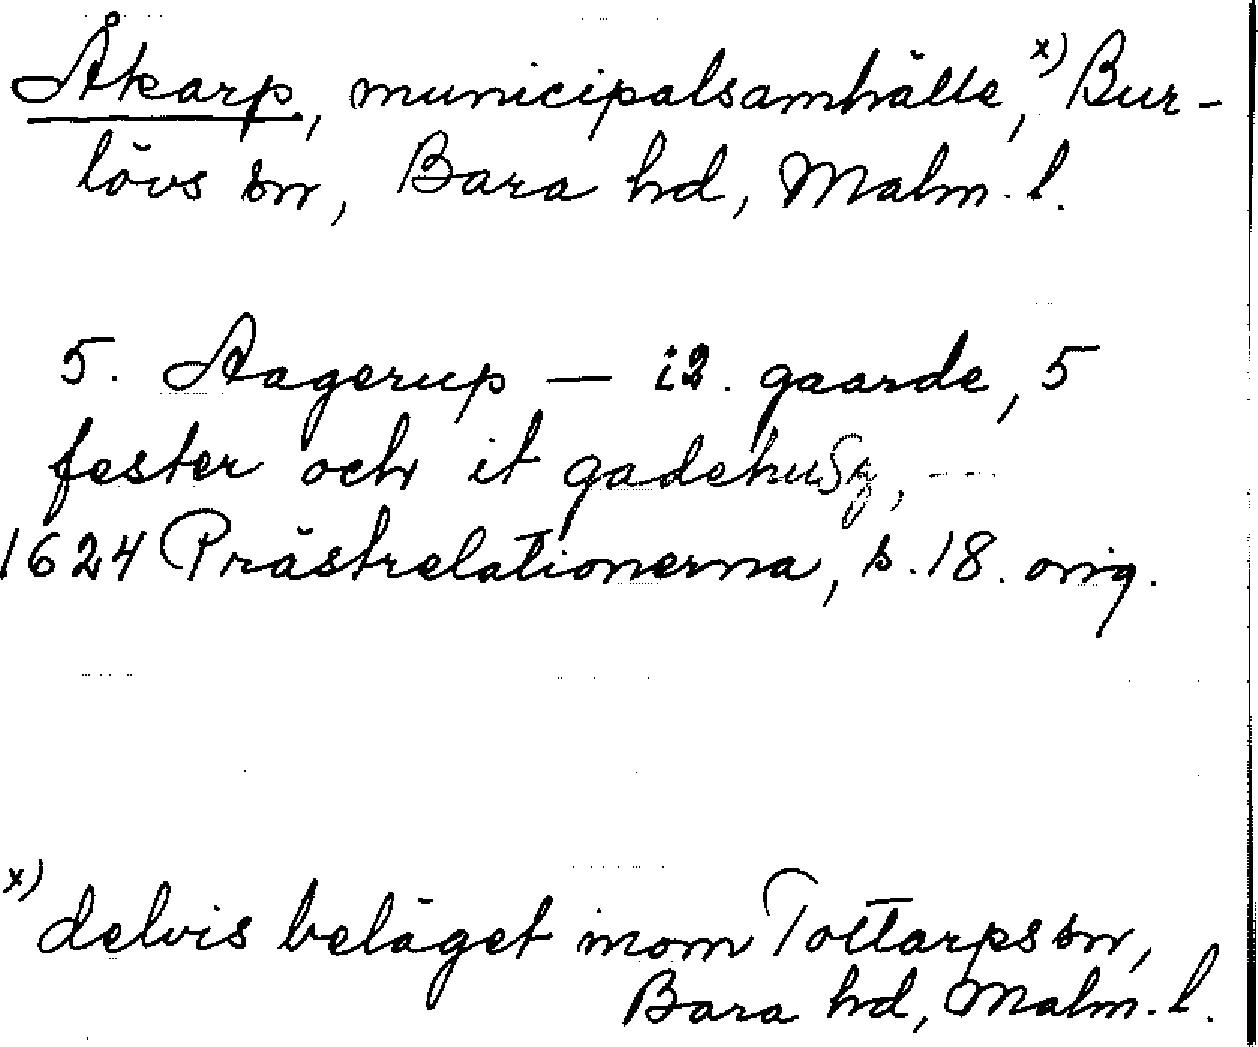 Åkarp, municipalsamhälle, x) Bur-
lövs sn, Bara hd, Malm. l.
5. Aagerup — i2. gaarde, 5
fester och it gadehusz, ---
1624 Prästrelationerna, s. 18. orig.
x) delvis beläget inom Tottarps sn,
Bara hd, Malm. l.